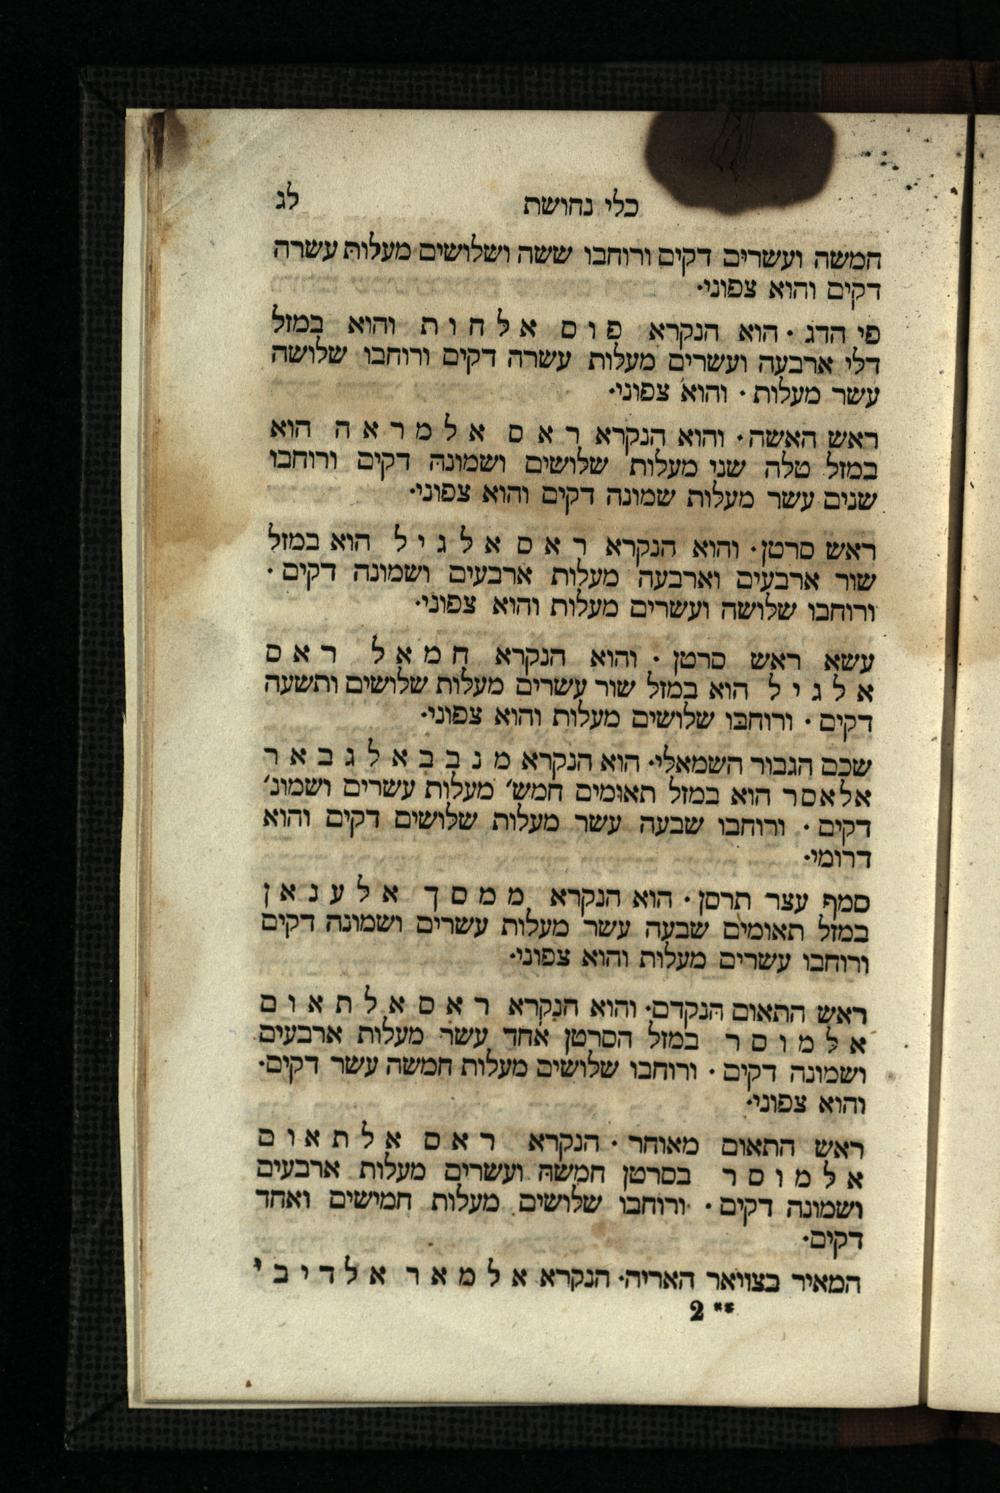 כלי נחושת לג
חמשה ועשרים דקים ורוחבו ששה ושלושים מעלות עשרה
דקים והוא צפוני·
פי הדג · הוא הנקרא פ ו ם א ל ח ו ת והוא במזל
דלי ארבעה ועשרים מעלות עשרה דקים ורוחבו שלושה
עשר מעלות · והוא צפוני·
ראש האשה· והוא הנקרא ר א ס א ל מ ר א ה הוא
במזל טלה שני מעלות שלושים ושמונה דקים ורוחבו
שנים עשר מעלות שמונה דקים והוא צפוני·
ראש סרטן· והוא הנקרא ר א ס א ל ג י ל הוא במזל
שור ארבעים וארבעה מעלות ארבעים ושמונה דקים ·
ורוחבו שלושה ועשרים מעלות והוא צפוני·
עשא ראש סרטן · והוא הנקרא ח מ א ל ר א ס
א ל ג י ל הוא במזל שור עשרים מעלות שלושים ותשעה
דקים · ורוחבו שלושים מעלות והוא צפוני·
שכם הגבור השמאלי· הוא הנקרא מ נ ב ב א ל ג ב א ר
אלאסר הוא במזל תאומים חמש׳ מעלות עשרים ושמונ׳
דקים · ורוחבו שבעה עשר מעלות שלושים דקים והוא
דרומי·
סמף עצר תרסן · הוא הנקרא מ מ ס ך א ל ע נ א ן
במזל תאומים שבעה עשר מעלות עשרים ושמונה דקים
ורוחבו עשרים מעלות והוא צפוני·
ראש התאום הנקדם· והוא הנקרא ר א ס א ל ת א ו ם
א ל מ ו ס ר במזל הסרטן אחד עשר מעלות ארבעים
ושמונה דקים · ורוחבו שלושים מעלות חמשה עשר דקים·
והוא צפוני·
ראש התאום מאוחר · הנקרא ר א ס א ל ת א ו ם
א ל מ ו ס ר בסרטן חמשה ועשרים מעלות ארבעים
ושמונה דקים · ורוחבו שלושים מעלות חמישים ואחד
דקים·
המאיר בצויאר האריה· הנקרא א ל מ א ר א ל ד י ב י
** 2